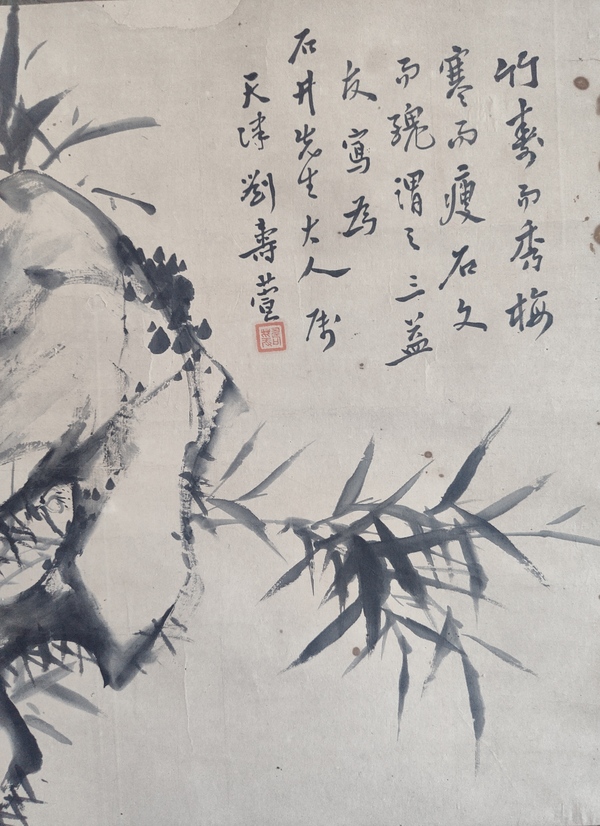 竹壽而秀梅
寒而瘦石文
而䰟謂之三益
友寫為
石井先生大人属
天津劉壽萱